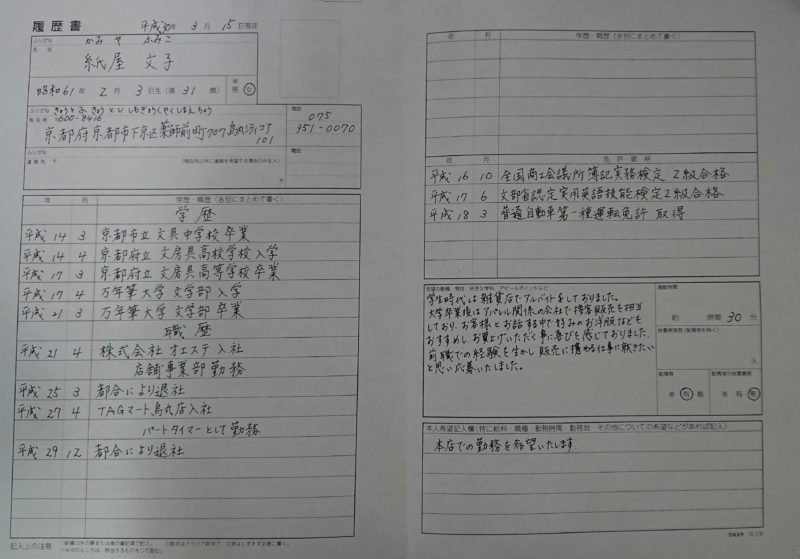 履歴書
平成30年 3月 15日現在
ふりがな かみや ふみこ
氏名
紙屋 文子
昭和61年 2月 3日生 (満 31歳)
男・女
ふりがな きょうとふ きょうとし しもぎょうく やくしまえちょう
〒600-8416
京都府京都市下京区薬師前町707 烏丸シティコア
101
電話 075
351-0070
ふりがな
連絡先 〒
(現住所以外に連絡を希望する場合のみ記入)
方
電話
年 月 学歴・職歴(各別にまとめて書く)
学歴
平成14 3 京都市立 文具中学校 卒業
平成14 4 京都府立 文房具高校学校 入学
平成17 3 京都府立 文房具高等学校 卒業
平成17 4 万年筆大学 文学部 入学
平成21 3 万年筆大学 文学部 卒業
職歴
平成21 4 株式会社 オエステ 入社
店舗事業部勤務
平成25 3 都合により退社
平成27 4 TAGマート烏丸店入社
パートタイマーとして勤務
平成29 12 都合により退社
記入上の注意
年 月 学歴・職歴(各別にまとめて書く)
年 月 免許・資格
平成16 10 全国商工会議所 簿記実務検定 2級合格
平成17 6 文部省認定実用英語技能検定2級合格
平成18 3 普通自動車第一種運転免許 取得
学生時代は雑貨店でアルバイトをしておりました。
大学卒業後はアパレル関係の会社で接客販売を担当
しており、お客様とお話する中で好みのお洋服などを
おすすめし お買上げいただく事に喜びを感じておりました。
前職での経験を生かし 販売に携わる仕事に就きたい
と思い応募いたしました。
通勤時間
約 時間 30分
扶養家族数(配偶者を除く)
人
配偶者
※ 有・無
配偶者の扶養義務
※ 有・無
本人希望記入欄(特に給料・職種・勤務時間・勤務地・その他についての希望などがあれば記入)
本店での勤務を希望いたします